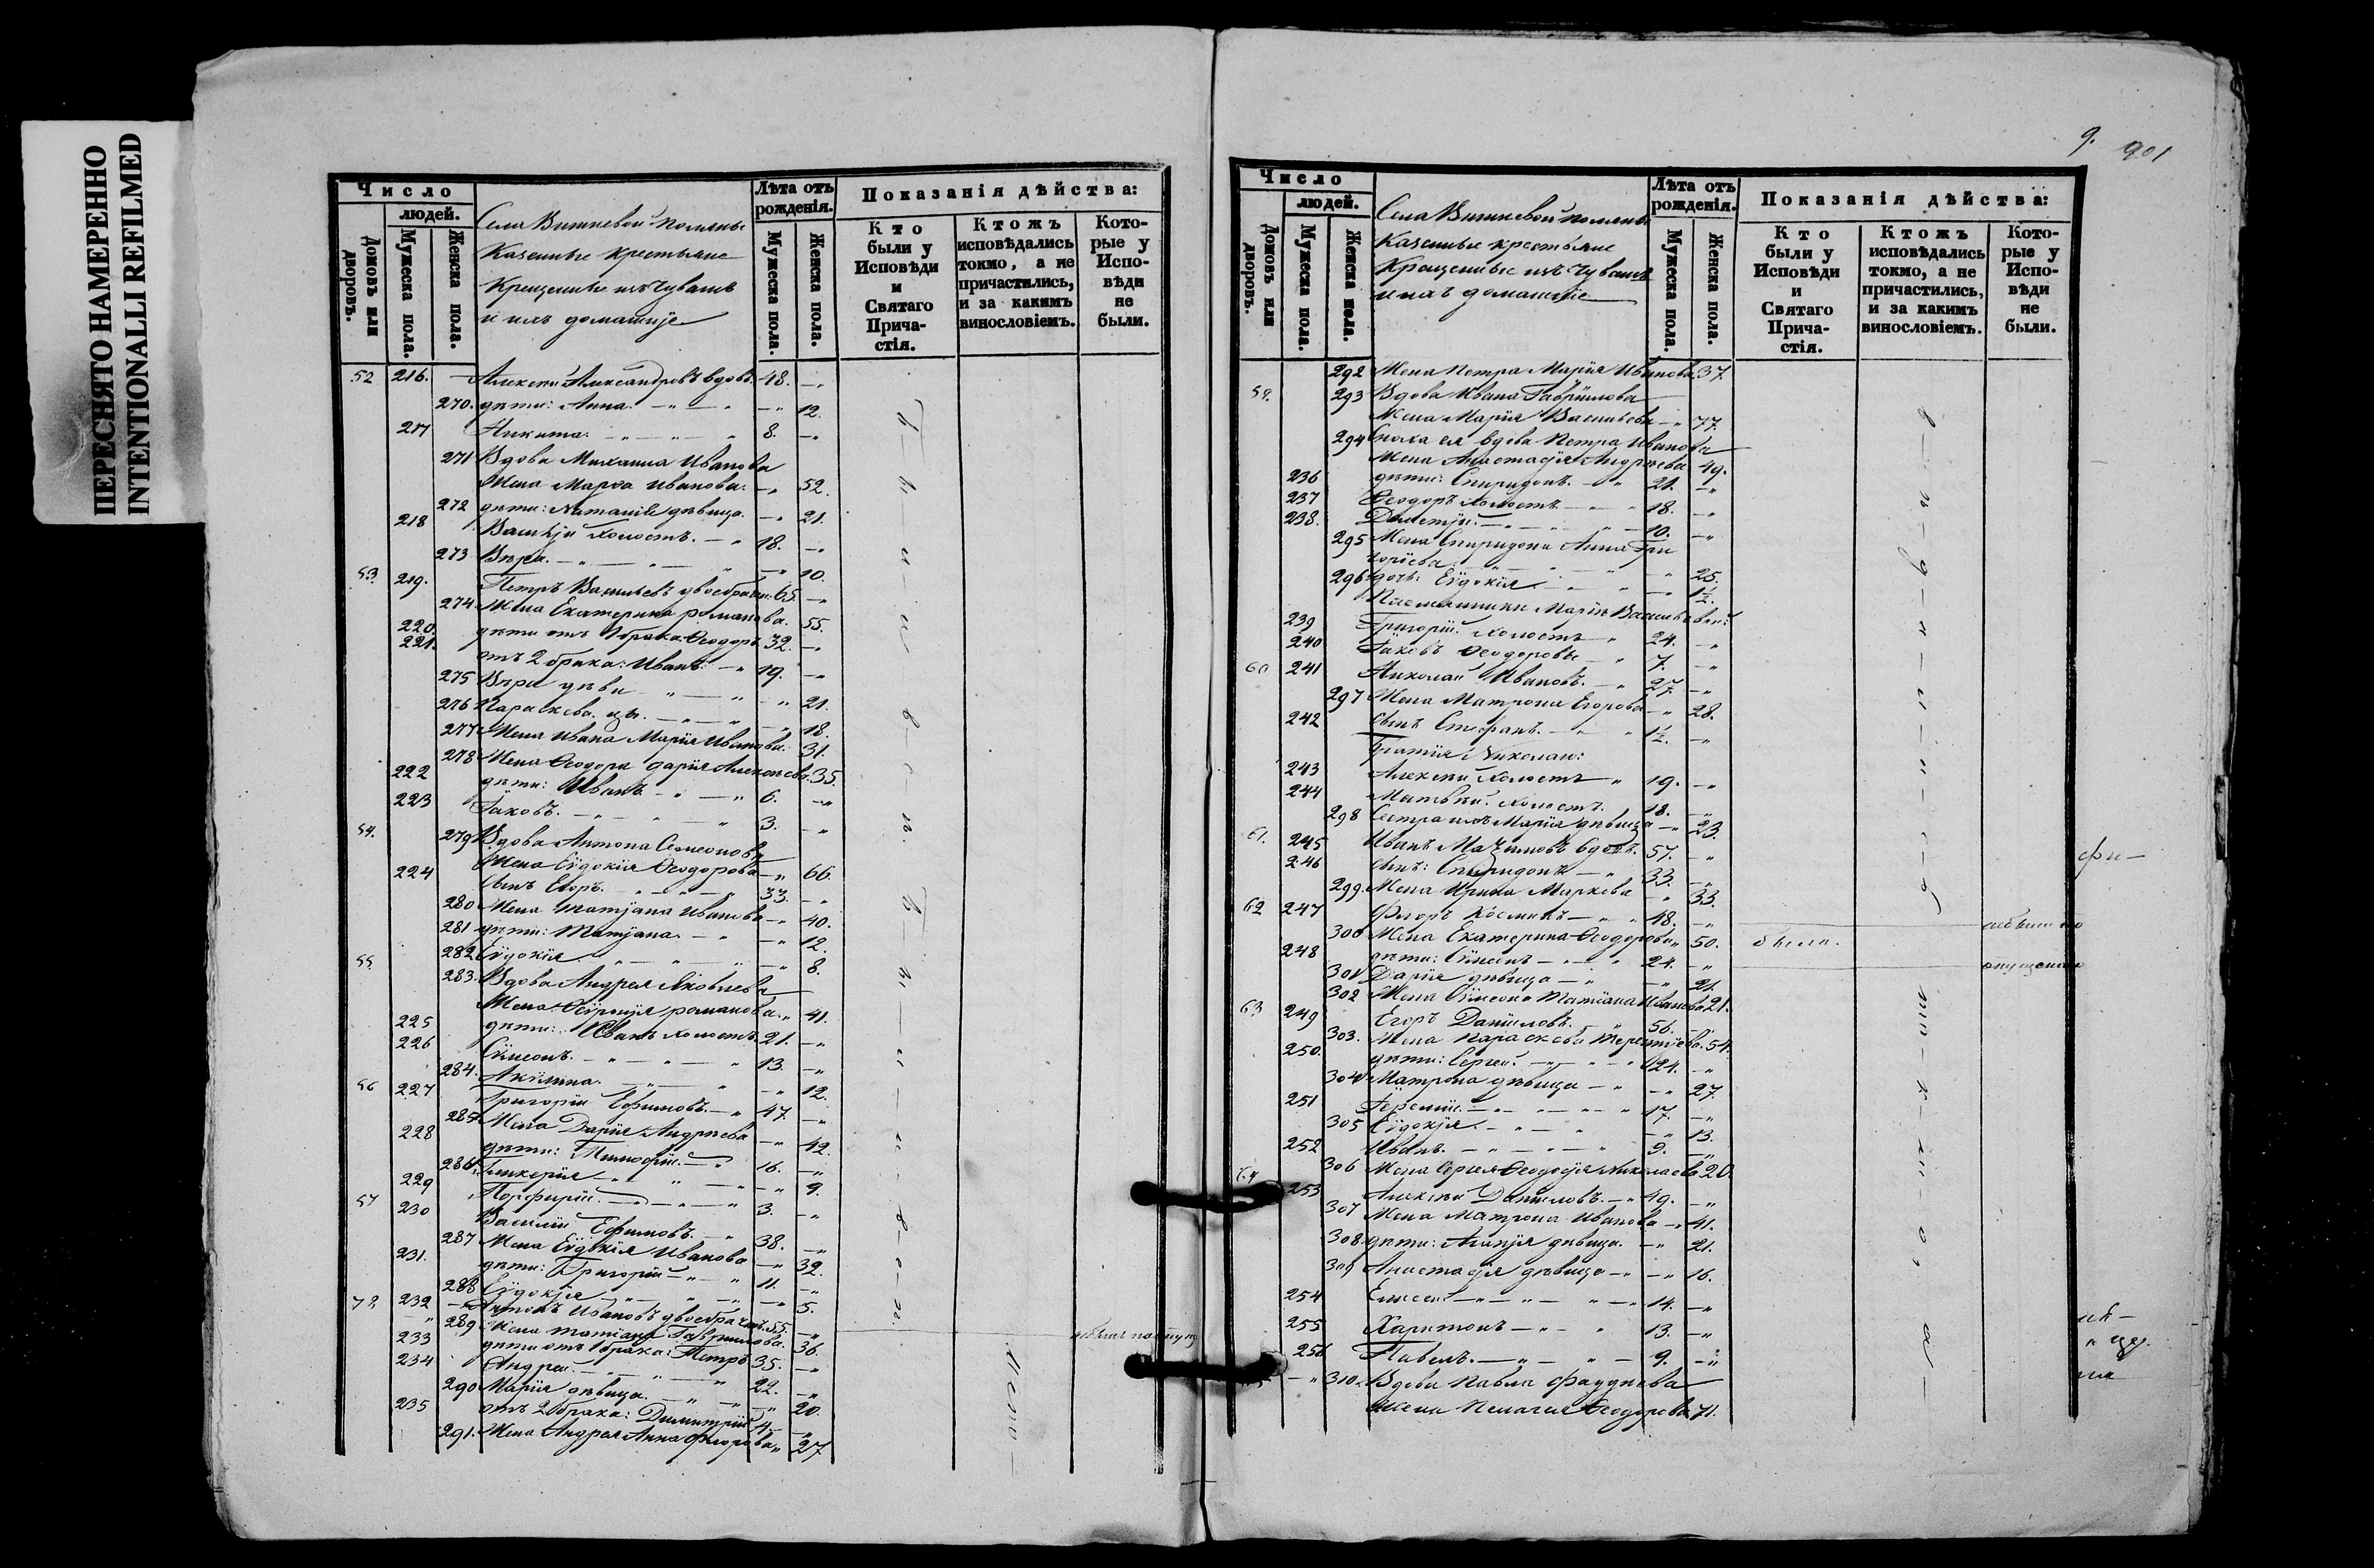 ПЕРЕСНЯТО НАМЕРЕННО
INTENTIONALLI REFILMED
Число
людей.
Домовъ или дворовъ.
Мужеска пола.
Женска пола.
Села Вишневой Поляны
Казенные крестьяне
Крещеные изъ Чувашъ
и ихъ домашніе
Лѣта отъ рожденія.
Мужеска пола.
Женска пола.
Показанія дѣйства:
Кто были у Исповѣди и Святаго Причастія.
Ктожъ исповѣдались токмо, а не причастились, и за какимъ винословіемъ.
Которые у Исповѣди не были.
52 216. Алексѣй Александровъ вдовъ. 48. —„
270. дѣти: Анна. —„ 12.
217 Никита. 8. —„
271 Вдова Михаила Иванова
Жена Марѳа Иванова. —„ 52.
272 дѣти: Наталія дѣвица. —„ 21.
218 Василій холостъ. —„ 18. —„
273 Вѣра. —„ 10.
53. 219. Петръ Васильевъ двоебрачн. 65. —„
274. Жена Екатерина романова. 55.
220. дѣти отъ 1 брака: Ѳеодоръ 32. —„
221. отъ 2 брака: Иванъ. —„ 19. —„
275 Вѣра дѣви —„ 21.
276 Параскева. дѣ. —„ 18.
277 Жена Ивана Марія Иванова. 31.
278 Жена Ѳеодора Дарія Алексѣева. 35.
222 дѣти: Иванъ —„ 6. —„
223 Іаковъ. —„ 3. —„
54. 279 Вдова Антона Семеонова
Жена Евдокія Ѳеодорова —„ 66.
224 сынъ Егоръ. —„ 33. —„
280 Жена Татіана Иванова —„ 40.
281 дѣти: Татіана. —„ 12.
282 Евдокія —„ 8.
55. 283. Вдова Андрея Яковлева
Жена романова. —„ 41.
225 дѣти: Иванъ холостъ. 21. —„
226 Сімеонъ. —„ 13. —„
284. Акилина. —„ 12.
56 227 Григорій Ефимовъ. —„ 47. —„
285 Жена Дарія Андреева —„ 42.
228 дѣти: Тимофій. —„ 16. —„
286 Гликерія —„ 9.
229 Порфирій. —„ 3. —„
57 230 Василій Ефимовъ. —„ 38. —„
287 Жена Евдокія Иванова —„ 32.
231. дѣти: Григорій —„ 11. —„
288 Евдокія —„ 5.
232 Антонъ Ивановъ двоебрачн. 55. —„
289 Жена Татіана Гаврилова. 36.
233 дѣти отъ 1 брака: Петръ 35. —„
234 Андрей. —„ 22. —„
290 Марія дѣвица. —„ 20.
235 отъ 2 брака: Димитрій 4. —„
291. Жена Андрея Анна —„ 27.
9. 901
Число
людей.
Домовъ или дворовъ.
Мужеска пола.
Женска пола.
Села Вишневой поляны
Казенные крестьяне
Крещеные изъ Чувашъ
и ихъ домашніе
Лѣта отъ рожденія.
Мужеска пола.
Женска пола.
Показанія дѣйства:
Кто были у Исповѣди и Святаго Причастія.
Ктожъ исповѣдались токмо, а не причастились, и за какимъ винословіемъ.
Которые у Исповѣди не были.
292 Жена Петра Марія Иванова 37.
59. 293 Вдова Ивана Гаврилова
Жена Марія Васильева —„ 77.
294 Сноха ея вдова Петра Иванова
Жена Анастасія Андреева 49.
236 дѣти: Спиридонъ. —„ 21. —„
237 Ѳеодоръ холостъ. —„ 18. —„
238. —„ 10. —„
295 Жена Спиридона Анна Гри
горіева. —„ 25.
296 дочь: Евдокія —„ 1½.
Племянники Маріи Васильевой:
239 Григорій холостъ —„ 24. —„
240 Іаковъ Ѳеодоровы —„ 7. —„
60 241 Николай Ивановъ. —„ 27. —„
297 Жена Матрона Егорова —„ 28.
242 сынъ Стефанъ. —„ 1½. —„
Братія Николаю:
243 Алексѣй холостъ —„ 19. —„
244 Матвѣй холостъ. 18. —„
298 Сестра ихъ Марія дѣвица —„ 23.
61. 245 Иванъ Максимовъ вдовъ. 57. —„
246 сынъ: Спиридонъ —„ 33. —„
299. Жена Ирина Маркова —„ 33.
62 247 Козминъ —„ 48. —„
300 Жена Екатерина Ѳеодорова „ 50. были.
248 дѣти: Сімеонъ —„ 24. —„
301 Дарія дѣвица —„ 21.
302 Жена Сімеона Татіана Иванова 21.
63 249 Егоръ Даниловъ. 56. —„
303. Жена Параскева Терентіева. 54.
250. дѣти: Сергей. —„ 24. —„
304 Матрона дѣвица —„ 27.
251 Іеремій. —„ 17. —„
305 Евдокія. —„ 13.
252 Иванъ. —„ 9. —„
306 Жена Сергея Ѳеодосія Николаева 20.
64 253 Алексѣй Даниловъ. —„ 49. —„
307 Жена Матрона Иванова —„ 41.
308. дѣти: Агапія дѣвица. —„ 21.
309 Анастасія дѣвица —„ 16.
254 Елисей —„ 14. —„
255 Харитонъ —„ 13. —„
256 Павелъ. —„ 9. —„
310. Вдова Павла Фаддеева
Жена Пелагія Ѳеодорова 71.